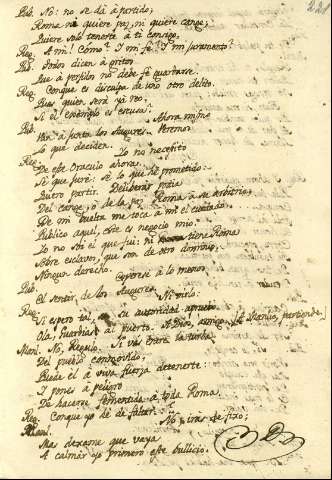 221
Pub. No: no se dá á partido,
Roma ni quiere paz, ni quiere cange;
Quiere solo tenerte á ti consigo.
Reg. A mi! Cómo? I mi fe? I mi juramento?
Pub. Todos dicen á gritos
Que á perfidos no debe fe guardarse.
Reg. Conque es disculpa de uno otro delito.
Pues quien será ya reo,
Si el exemplo es escusa?
Pub. Ahora mismo
Van á junta los Augures. Veremos
Lo que deciden.
Reg. Yo no necesito
De ese Oraculo ahora.
Sé que juré: sé lo que he prometido:
Quiero partir. Deliberar podia
Del cange, ó de la paz Roma á su arbitrio;
De mi buelta me toca á mi el cuidado.
Publico aquel, este es negocio mio.
Yo no soi el que fui: ni tiene Roma
Sobre esclavos, que son de otro dominio,
Ningun derecho.
Pub. Oyerase á lo menos
El sentir de los Augures.
Reg. Ni oirlo.
Si espero tal, su autoridad apruebo.
Olá, Guardias al puerto. A Dios, amigo. [A Manlio, partiendo.]
Manl. No, Regulo. Si vás entre la turba
Del pueblo conmovido,
Puede él á viva fuerza detenerte:
I pones á peligro
De hacerse fementida á toda Roma.
Reg. Conque yo hé de faltar?
Manl. No, irás de fixo;
Mas dexame que vaya
A calmar yo primero este bullicio.